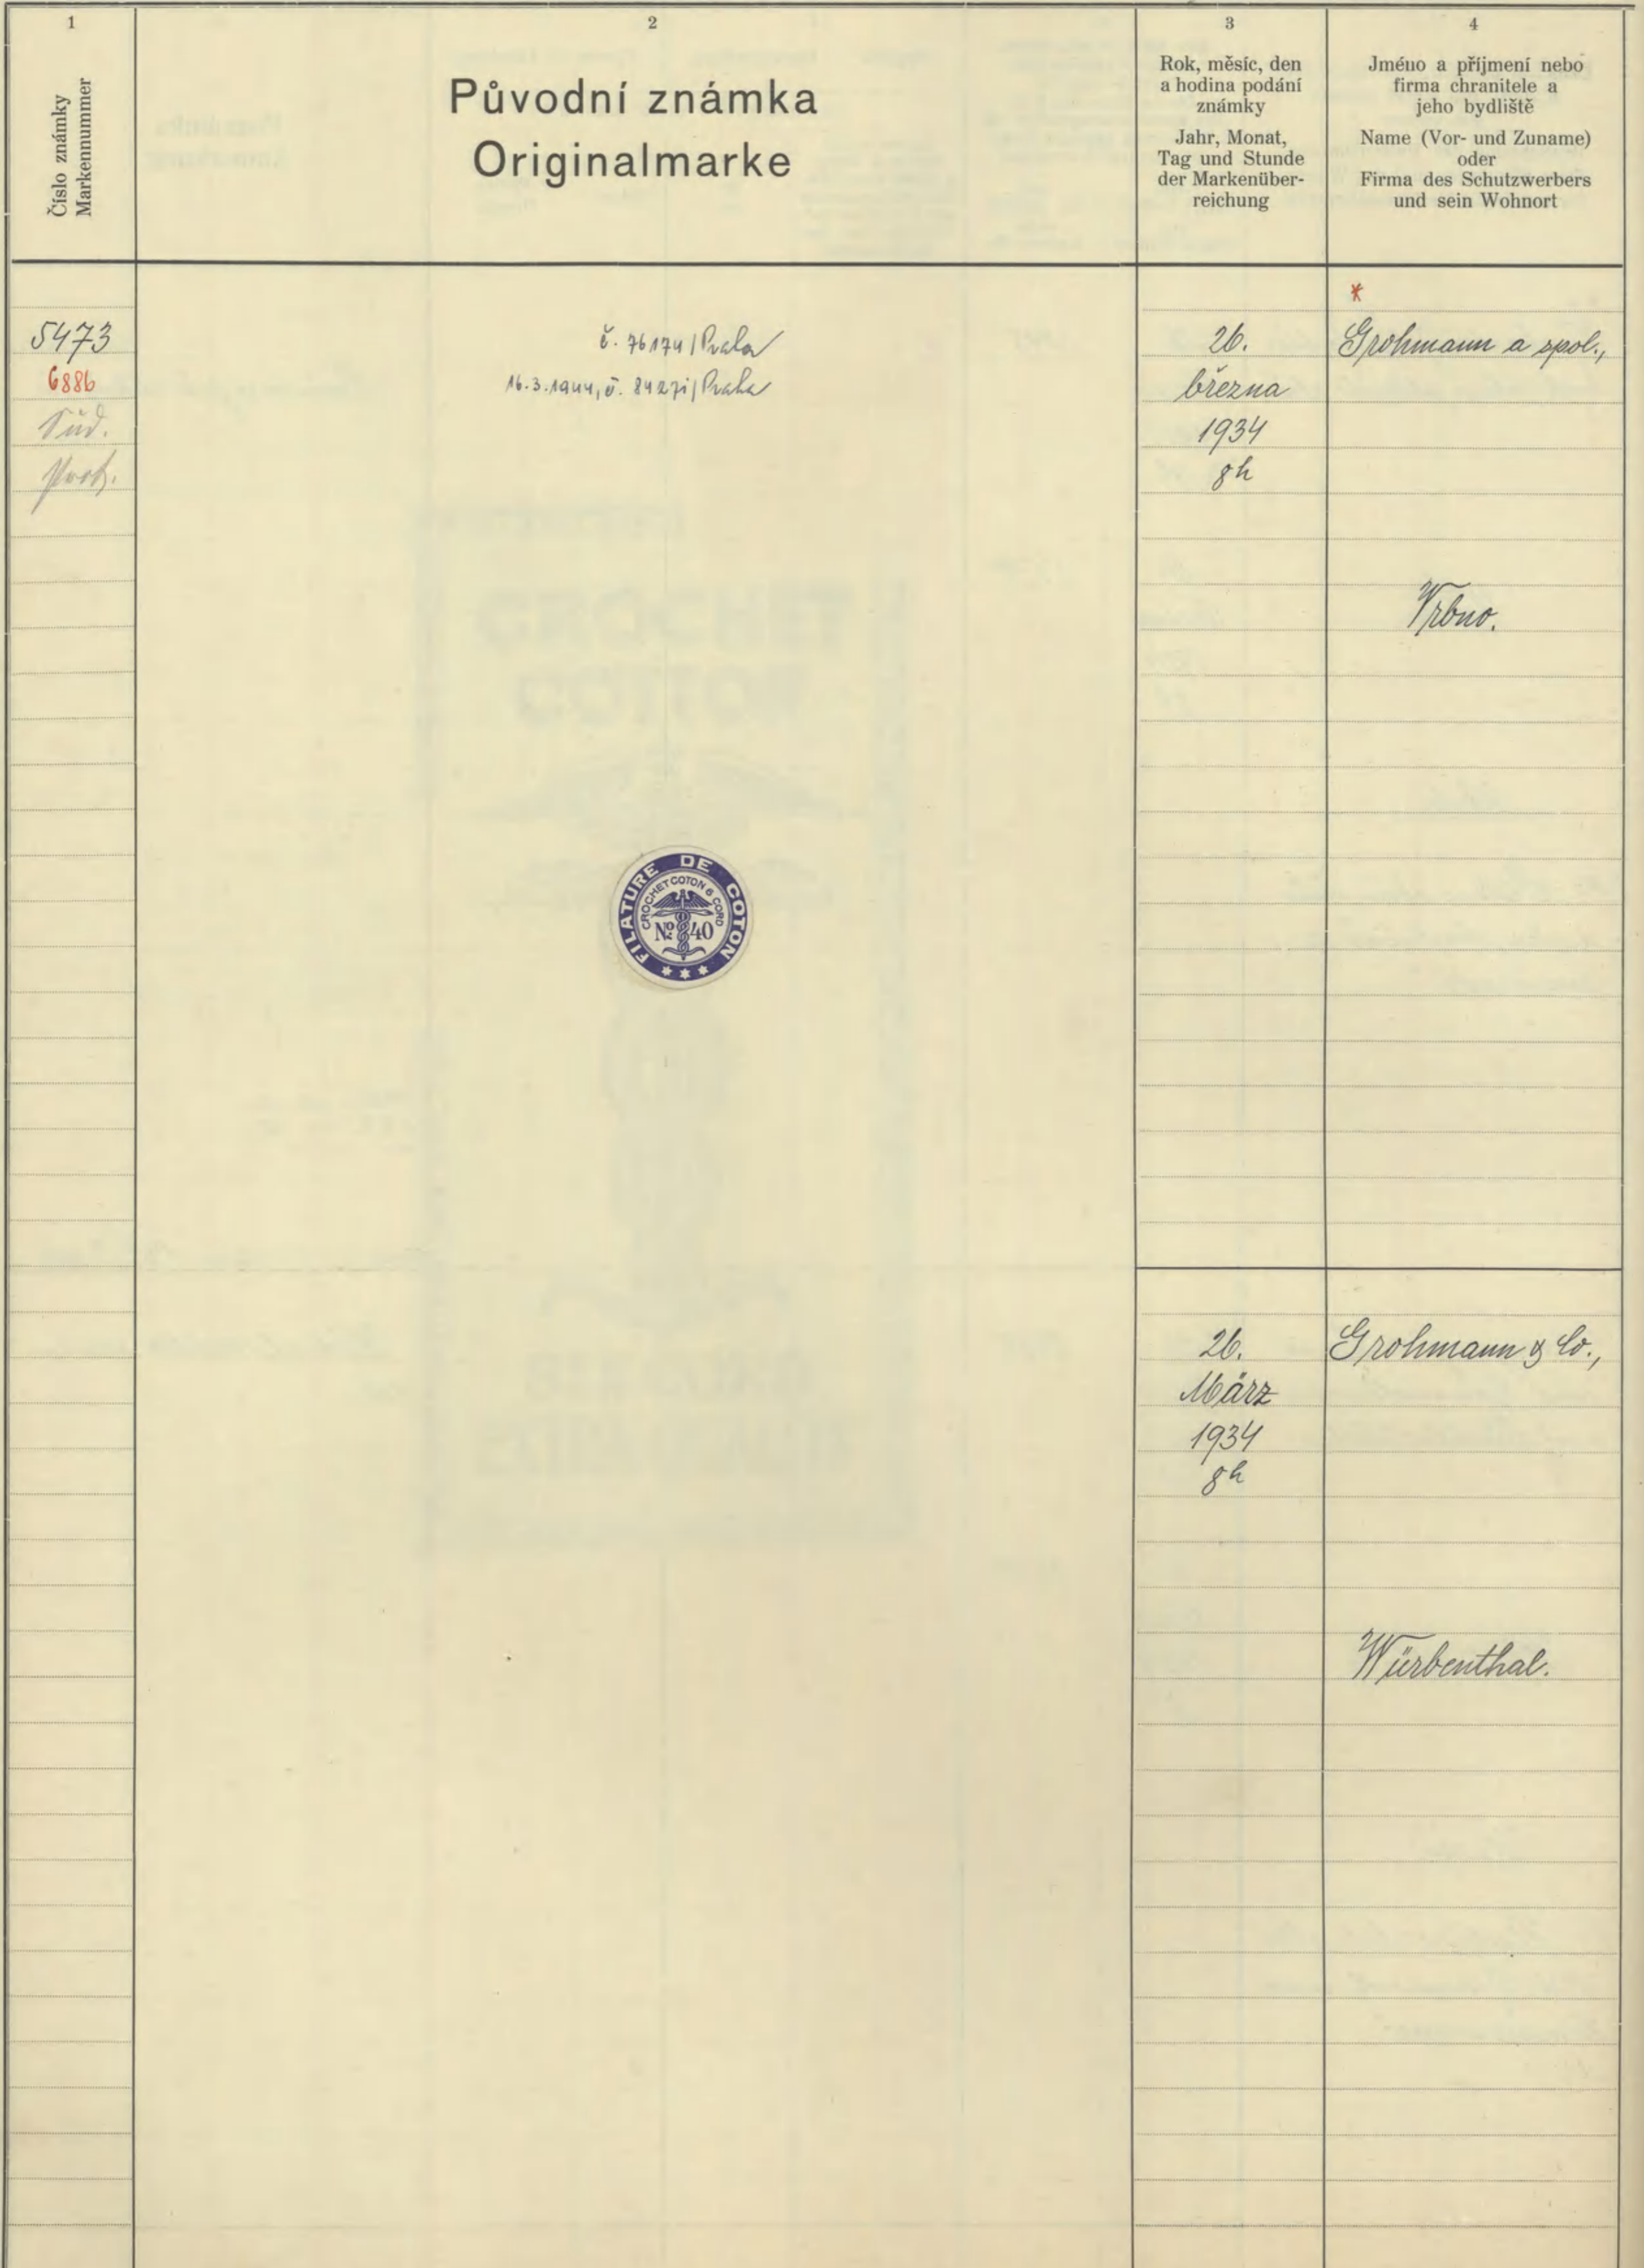 1
Číslo známky
Markennummer
2
Původní známka
Originalmarke
3
Rok, měsíc, den
a hodina podání
známky
Jahr, Monat,
Tag und Stunde
der Markenüber-
reichung
4
Jméno a příjmení nebo
firma chranitele a
jeho bydliště
Name (Vor- und Zuname)
oder
Firma des Schutzwerbers
und sein Wohnort
5473
6886
Süd.
Prot.
č. 76174/Praha
16.3.1944, č. 84271/Praha
26.
března
1934
8h
*
Grohmann a spol.,
Vrbno.
FILATURE DE COTON
CROCHET COTON & CORD
Nº 40
26.
März
1934
8h
Grohmann & Co.,
Würbenthal.